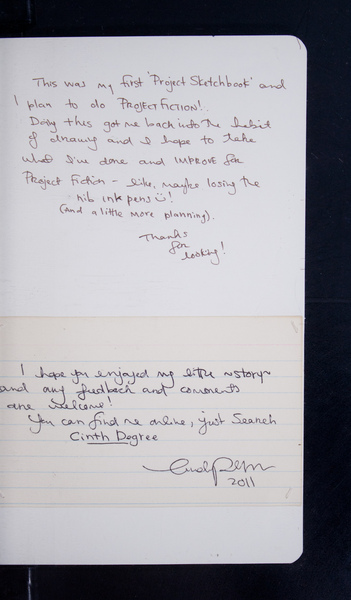 This was my first 'Project Sketchbook' and
I plan to do PROJECT FICTION!.
Doing this got me back into the habit
of drawing and I hope to take
what I've done and IMPROVE for
Project Fiction - like, maybe losing the
nib ink pens!
(and a little more planning).
Thanks
for
looking!
I hope you enjoyed my little ~story~
and any feedback and comments
are welcome!
You can find me online, just Search
Cinth Degree
2011